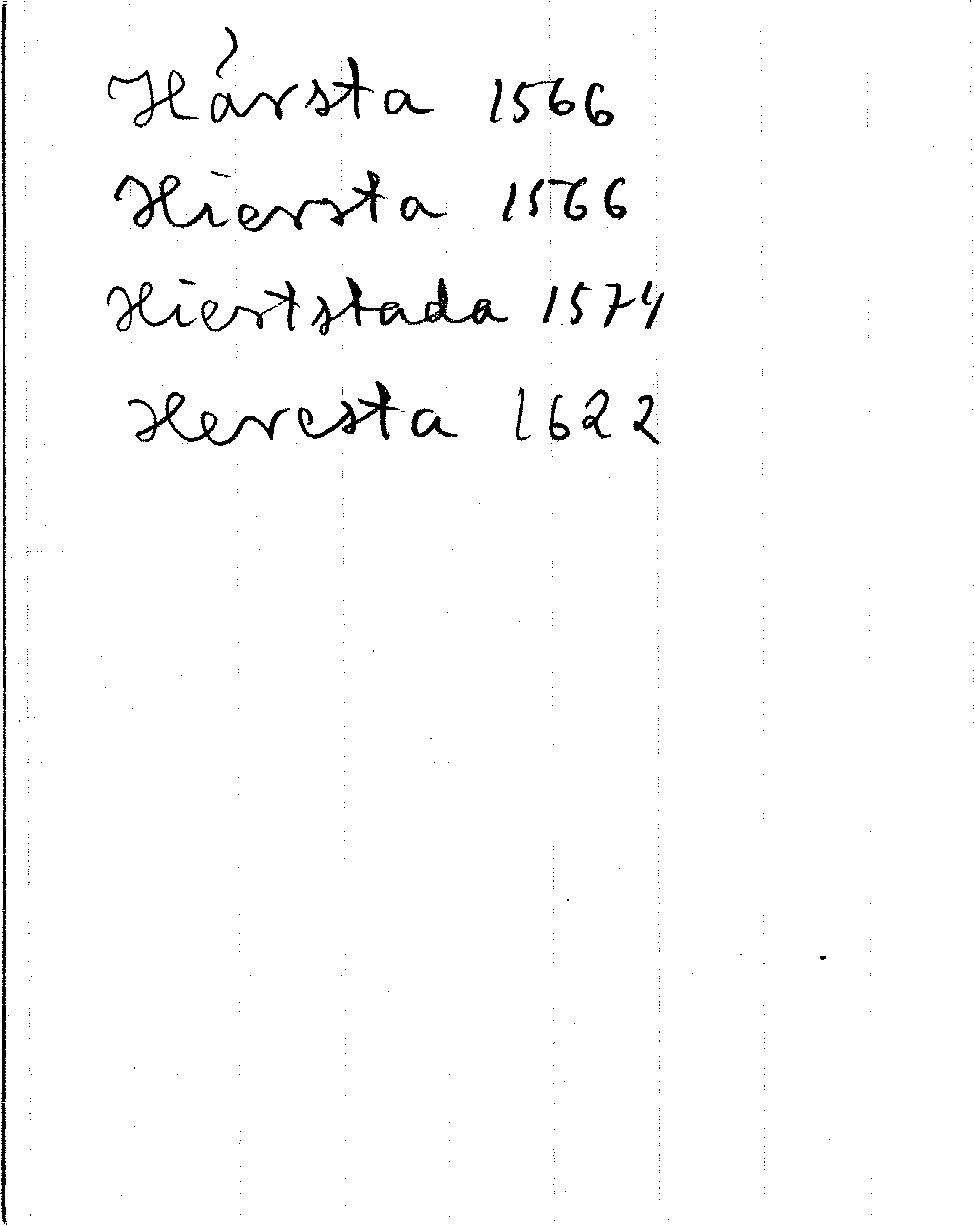 Hársta 1566
Hiersta 1566
Hiertstada 1574
Heresta 1622